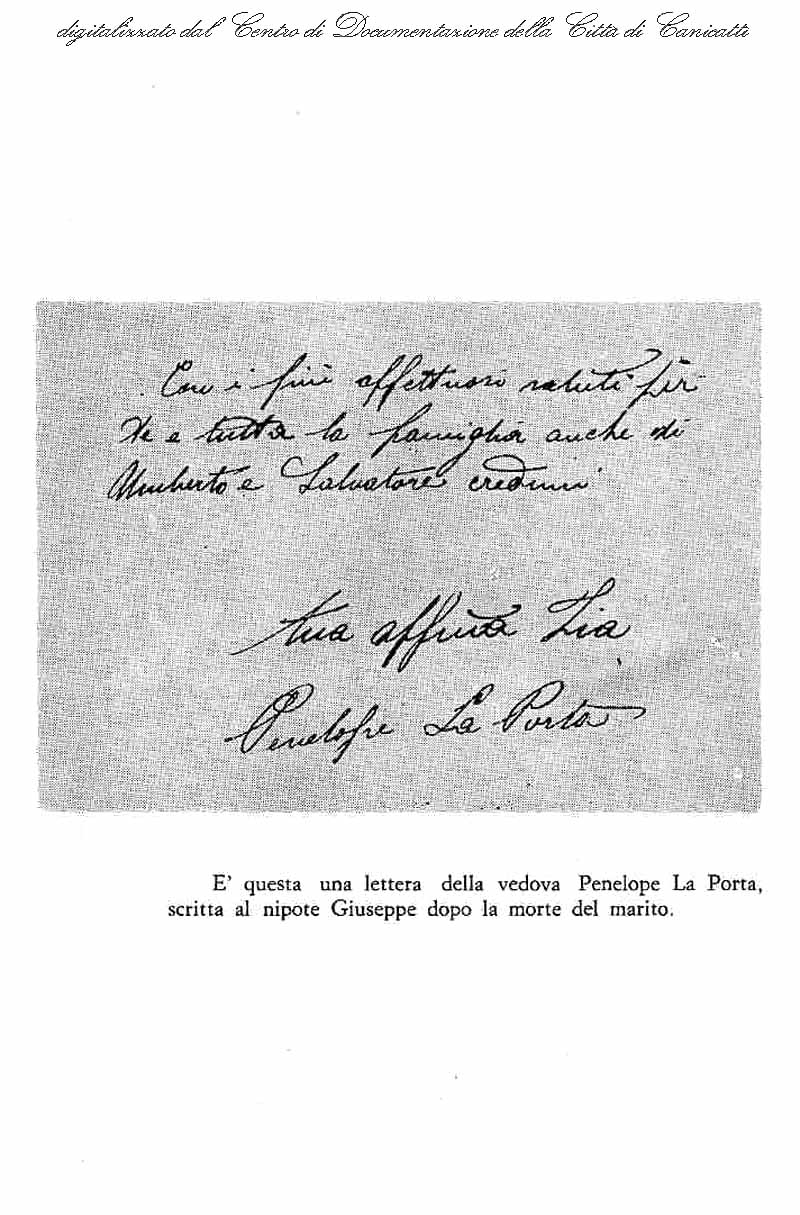 digitalizzato dal Centro di Documentazione della Città di Canicattì
Con i più affettuosi saluti per
Te e tutta la famiglia anche di
Umberto e Salvatore credimi
tua affma Zia
Penelope La Porta
E' questa una lettera della vedova Penelope La Porta,
scritta al nipote Giuseppe dopo la morte del marito.